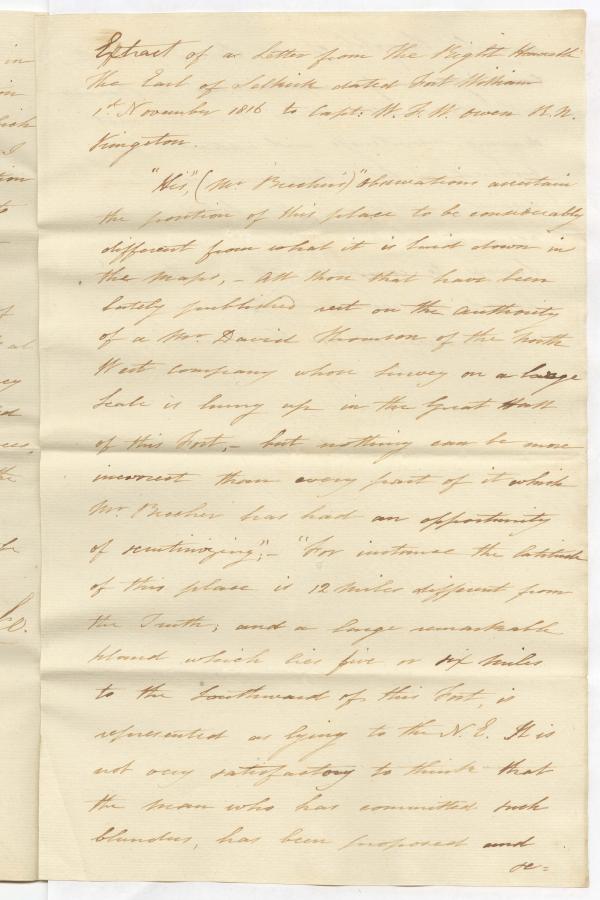 in
on
which
I
tion
to
of
al
ey
ed
ces,
the
be
Co.
Extract of a Letter from the Right Honorable
the Earl of Selkirk dated Fort William
1st November 1816 to Capt: W. F. W. Owen R.N.
Kingston.
"His," (Mr Beecher's) "Observations ascertain
the position of this place to be considerably
different from what it is laid down in
the Maps, - All those that have been
lately published rest on the authority
of a Mr. David Thomson of the North
West Company whose survey on a large
Scale is hung up in the Great Hall
of this Fort, - but nothing can be more
incorrect than every part of it which
Mr. Beecher has had an opportunity
of scrutinizing"; - "For instance the latitude
of this place is 12 Miles different from
the Truth; and a large remarkable
Island which lies five or six Miles
to the Southward of this Fort, is
represented as lying to the N.E. It is
not very satisfactory to think that
the man who has committed such
blunders, has been proposed and
re=